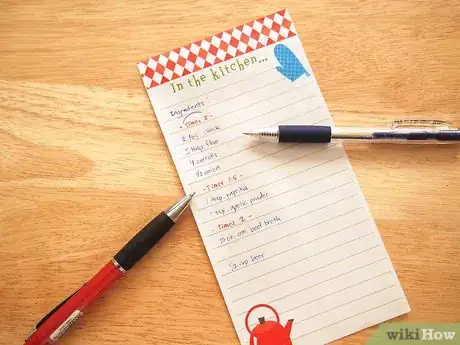 In the kitchen...
Ingredients :
- Times 3 -
2 lbs. chuck
flour
4 carrots
1/2 onion
- Times 1.5 -
1 tsp. paprika
1 tsp. garlic powder
- Times 2 -
10 oz. can beef broth
1/2 cup beer
wikiHow